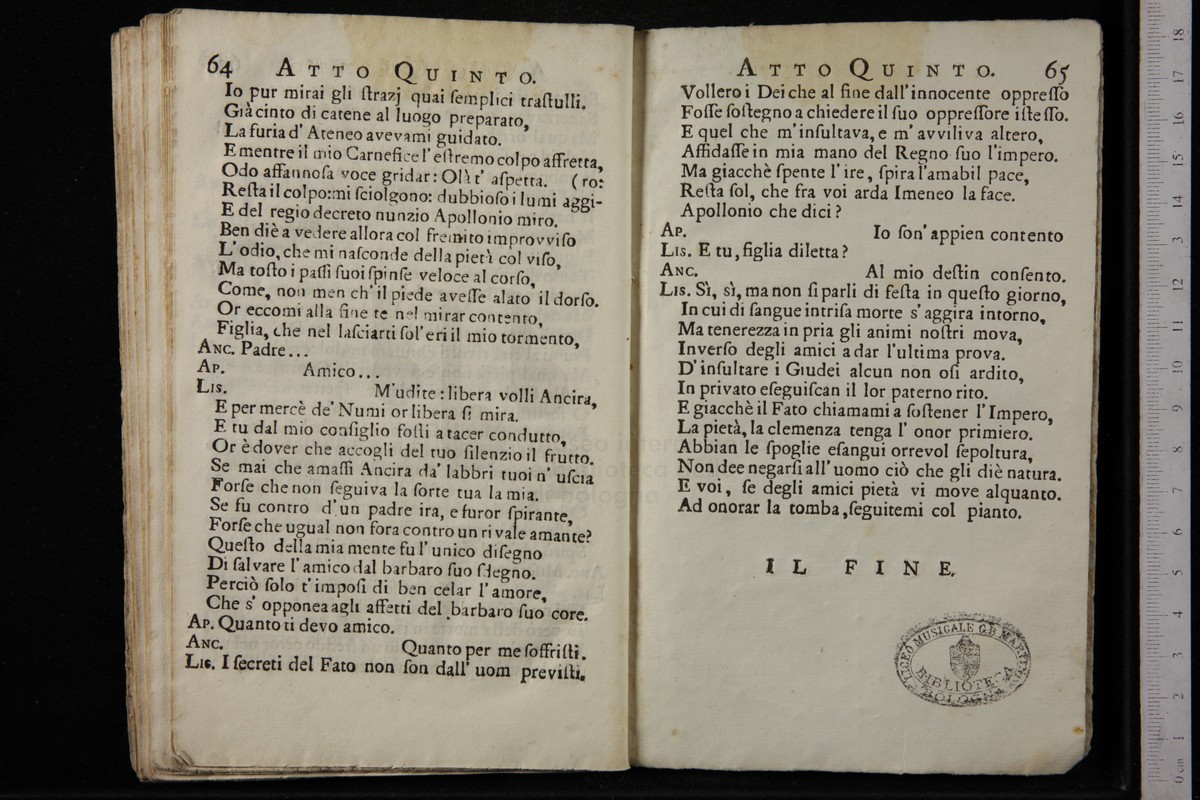 64 ATTO QUINTO.
Io pur mirai gli ſtrazj quai ſemplici traſtulli.
Giàcinto di catene al luogo preparato,
La furia d' Ateneo avevami guidato.
E mentre il mio Carnefice l' eſtremo colpo affretta,
Odo affannoſa voce gridar: Olà t' aſpetta. (ro:
Reſta il colpo: mi ſciolgono: dubbioſo i lumi aggi-
E del regio decreto nunzio Apollonio miro.
Ben diè a vedere allora col fremito improvviſo
L' odio, che mi naſconde della pietà col viſo,
Ma toſto i paſſi ſuoi ſpinſe veloce al corſo,
Come, non men ch' il piede aveſſe alato il dorſo.
Or eccomi alla fine te nel mirar contento,
Figlia, che nel laſciarti ſol' eri il mio tormento,
ANC. Padre...
AP. Amico...
LIS. M'udite: libera volli Ancira,
E per mercè de' Numi or libera ſi mira.
E tu dal mio conſiglio foſti a tacer condutto,
Or è dover che accogli del tuo ſilenzio il frutto.
Se mai che amaſſi Ancira da' labbri tuoi n' uſcia
Forſe che non ſeguiva la ſorte tua la mia.
Se fu contro d' un padre ira, e furor ſpirante,
Forſe che ugual non fora contro un rivale amante?
Queſto della mia mente fu l' unico diſegno
Di ſalvare l' amico dal barbaro ſuo ſdegno.
Perciò ſolo t' impoſi di ben celar l' amore,
Che s' opponea agli affetti del barbaro ſuo core.
AP. Quanto ti devo amico.
ANC. Quanto per me ſoffriſti.
LIS. I ſecreti del Fato non ſon dall' uom previſti.
ATTO QUINTO. 65
Vollero i Dei che al fine dall' innocente oppreſſo
Foſſe ſoſtegno a chiedere il ſuo oppreſſore iſteſſo.
E quel che m' inſultava, e m' avviliva altero,
Affidaſſe in mia mano del Regno ſuo l'impero.
Ma giacchè ſpente l' ire, ſpira l'amabil pace,
Reſta ſol, che fra voi arda Imeneo la face.
Apollonio che dici?
AP. Io ſon' appien contento
LIS. E tu, figlia diletta?
ANC. Al mio deſtin conſento.
LIS. Sì, sì, ma non ſi parli di feſta in queſto giorno,
In cui di ſangue intriſa morte s' aggira intorno,
Ma tenerezza in pria gli animi noſtri mova,
Inverſo degli amici a dar l'ultima prova.
D' inſultare i Giudei alcun non oſi ardito,
In privato eſeguiſcan il lor paterno rito.
E giacchè il Fato chiamami a ſoſtener l' Impero,
La pietà, la clemenza tenga l' onor primiero.
Abbian le ſpoglie eſangui orrevol ſepoltura,
Non dee negarſi all' uomo ciò che gli diè natura.
E voi, ſe degli amici pietà vi move alquanto.
Ad onorar la tomba, ſeguitemi col pianto.
IL FINE.
LICEO MUSICALE G.B. MARTINI
BIBLIOTECA
BOLOGNA